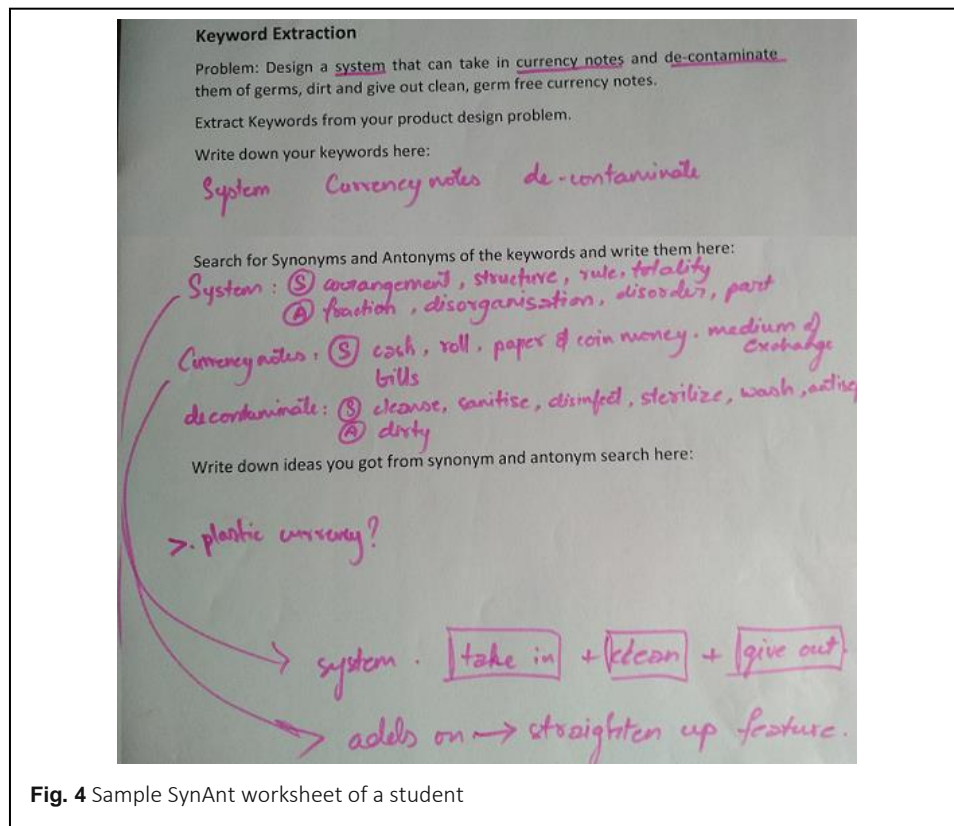 Keyword Extraction
Problem: Design a system that can take in currency notes and de-contaminate
them of germs, dirt and give out clean, germ free currency notes.
Extract Keywords from your product design problem.
Write down your keywords here:
System Currency notes de-contaminate
Search for Synonyms and Antonyms of the keywords and write them here:
System : S arrangement, structure, rule, totality
A fraction, disorganisation, disorder, part
Currency notes : S cash, roll, paper & coin money, medium of
exchange
bills
decontaminate : S cleanse, sanitise, disinfect, sterilize, wash,
A dirty
Write down ideas you got from synonym and antonym search here:
>. plastic currency?
system . take in + clean + give out
adds on → straighten up feature.
Fig. 4 Sample SynAnt worksheet of a student